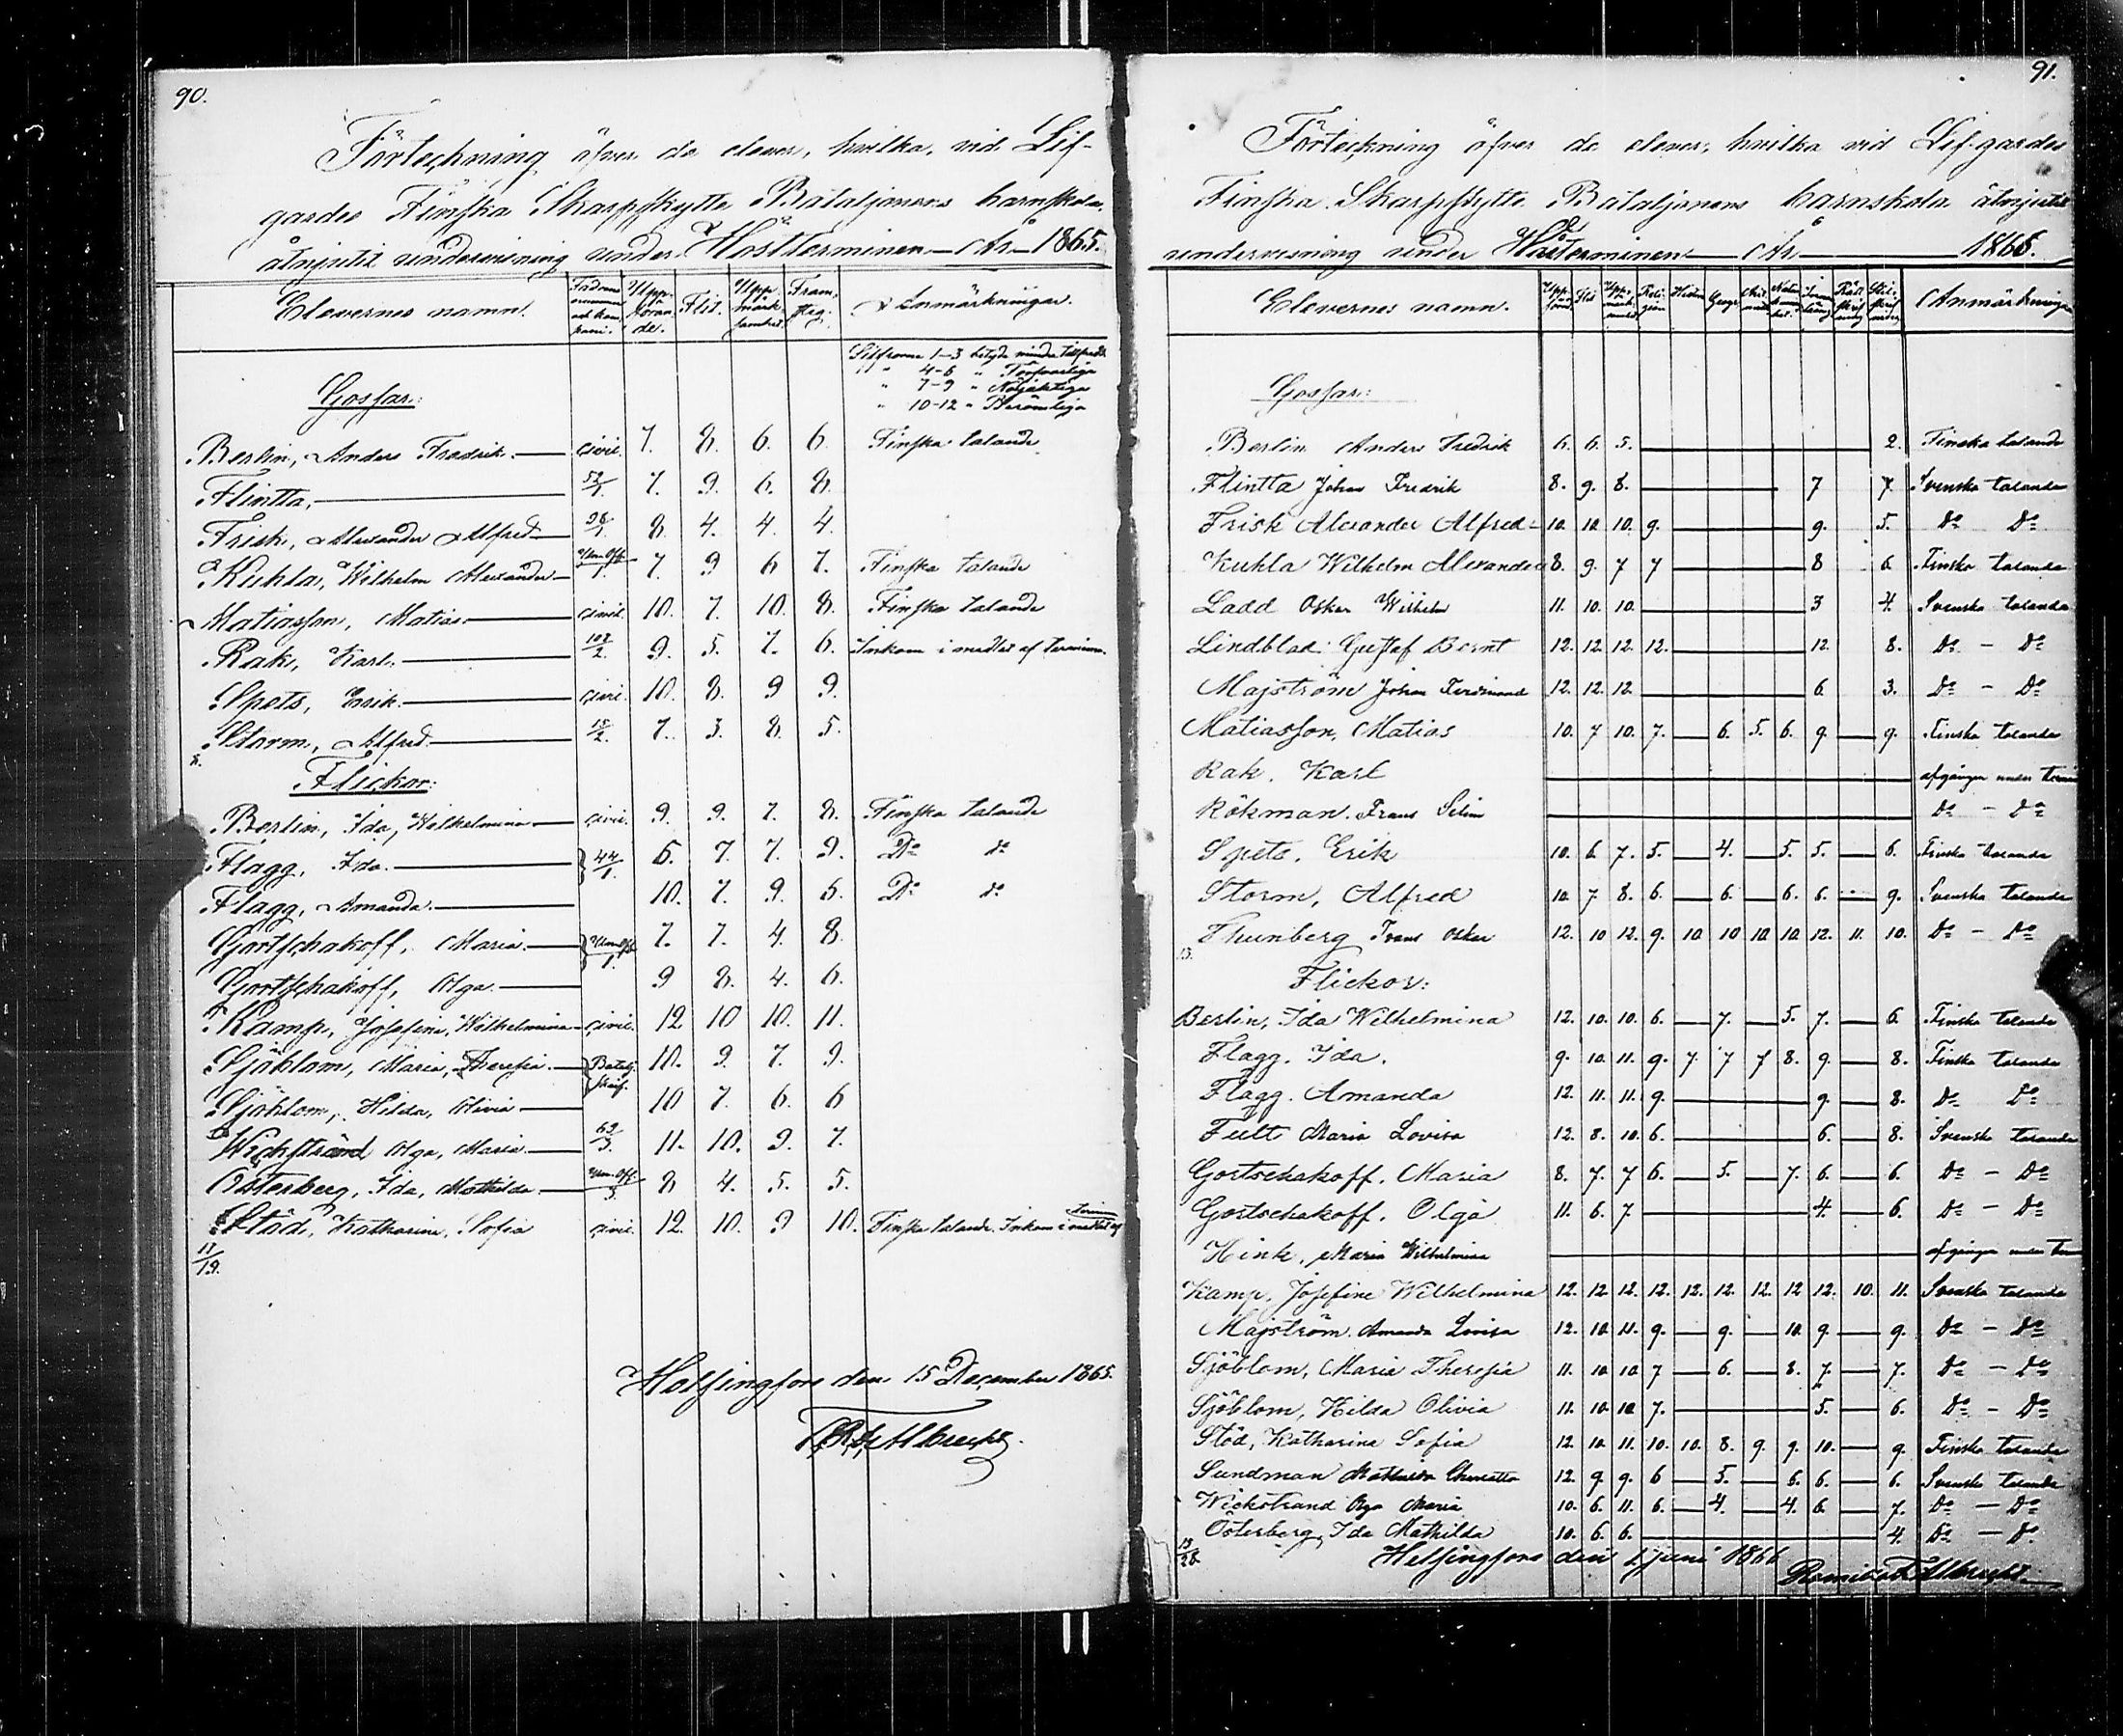 90.
Förteckning öfver de elever, hvilka, vid Lif-
gardes Finska Skarpskytte Bataljonens barnskola
åtnjutit undervisning under Höstterminen — År — 1865.
Elevernes namn. Fadrens nummer och kompani. Uppförande. Flit. Uppmärksamhet. Framsteg. Anmärkningar.
Siffrorna 1-3 betyda mindre
" 4-6 " Försvarliga
" 7-9 " Nöjaktiga
" 10-12 " Berömliga
Gossar:
Berlin, Anders Fredrik. — civil. 7. 8. 6. 6. Finska talande
Flintta, — 52/1. 7. 9. 6. 8.
Frisk, Alexander Alfred — 96/1. 8. 4. 4. 4.
Kuhla, Wilhelm Alexander — Und.Off./1. 7. 9 6 7. Finska talande
Matiasson, Matias — civil. 10. 7. 10. 8. Finska talande
Rak, Karl. — 107/2. 9. 5. 7. 6. Inkom i medlet af terminen.
Spets, Erik. — civil. 10. 8. 9 9.
Storm, Alfred. — 15/2. 7. 3. 8. 5.
8.
Flickor:
Berlin, Ida, Wilhelmina — civil. 9. 9. 7. 8. Finska talande
Flagg, Ida. — 44/1. 6. 7. 7. 9. Do do
Flagg, Amanda. — 10. 7. 9. 6. Do do
Gortschakoff, Maria. — Und.Off./1. 7. 7. 4. 8.
Gortschakoff, Olga. — 9 8. 4. 6.
Kamp, Josefina, Wilhelmina — civil. 12 10 10. 11.
Sjöblom, Maria, Theresia. — Batalj. skrif. 10. 9. 7. 9.
Sjöblom, Hilda, Olivia — 10 7. 6. 6
Wickstrand Olga, Maria — 69/3. 11. 10. 9. 7.
Österberg, Ida, Mathilda. — Und.Off./3. 8 4. 5. 5.
Stöd, Katharina, Sofia civil. 12. 10. 9 10. Finska talande. Inkom i medlet af termin
11/19.
Helsingfors den 15 December 1865.
Albrecht.
91.
Förteckning öfver de elever, hvilka vid Lif-gardes
Finska Skarpskytte Bataljonens barnskola åtnjutit
undervisning under Höstterminen — År — 1866.
Elevernes namn. Uppförande Flit Uppmärksamhet Religion Histor. Geogr. Natur Innanläsning Rättskrifning Stilskrifning Anmärkningar
Gossar:
Berlin Anders Fredrik 6. 6. 5. — 2. Finska talande
Flintta Johan Fredrik 8. 9. 8. — 7 7. Svenska talande
Frisk Alexander Alfred — 10. 10. 10. 9. — 9. 5. Do Do
Kuhla Wilhelm Alexander 8. 9. 7 7 — 8 6. Finska talande
Ladd Oskar Wilhelm 11. 10. 10. — 3 4. Svenska talande
Lindblad Gustaf Bernt 12. 12. 12. 12. — 12. 8. Do — Do
Majström Johan Ferdinand 12. 12. 12. — 6 3. Do — Do
Matiasson, Matias 10. 7 10. 7. — 6. 5. 6. 9. — 9. Finska talande
Rak. Karl — afgången under
Rökman. Frans Selim — Do — Do
Spets. Erik 10. 6. 7. 5. — 4. — 5. 5. — 6. Finska talande
Storm, Alfred 10. 7 8. 6. — 6. — 6. 6. — 9. Svenska talande
Thunberg Frans Oskar 12. 10 12. 9. 10. 10 10. 10. 12. 11. 10. Do — Do
13.
Flickor:
Berlin, Ida Wilhelmina 12. 10. 10. 6. — 7. — 5. 7. — 6. Finska talande
Flagg. Ida. 9. 10. 11. 9. 7. 7 7 8. 9. — 8. Finska talande
Flagg. Amanda 12. 11. 11. 9. — 9. — 8. Do Do
Fult Maria Lovisa 12. 8. 10. 6. — 6. — 8. Svenska talande
Gortschakoff. Maria 8. 7. 7 6. — 5. — 7. 6. — 6. Do — Do
Gortschakoff. Olga 11. 6. 7 — 4. — 6. Do — Do
Hink, Maria Wilhelmina — afgången under
Kamp, Josefine Wilhelmina 12. 12. 12. 12. 12. 12. 12. 12 12. 10. 11. Svenska talande
Majström. Amanda Lovisa 12. 10. 11. 9. — 9. — 10. 9. — 9. Do — Do
Sjöblom, Maria Theresia 11. 10. 10 7 — 6. — 8. 7. — 7. Do — Do
Sjöblom, Hilda Olivia 11. 10. 10. 7. — 5. — 6. Do — Do
Stöd, Katharina Sofia 12. 10. 11. 10. 10. 8. 9. 9. 10. — 9. Finska talande
Sundman Mathilda 12. 9. 9. 6 — 5. — 6. 6. — 6. Svenska talande
Wickstrand Olga Maria 10. 6. 11. 6. — 4. — 4. 6. — 7. Do — Do
Österberg, Ida Mathilda 10. 6. 6. — 4. Do — Do
15/28.
Helsingfors den 1 juni 1866
Albrecht.